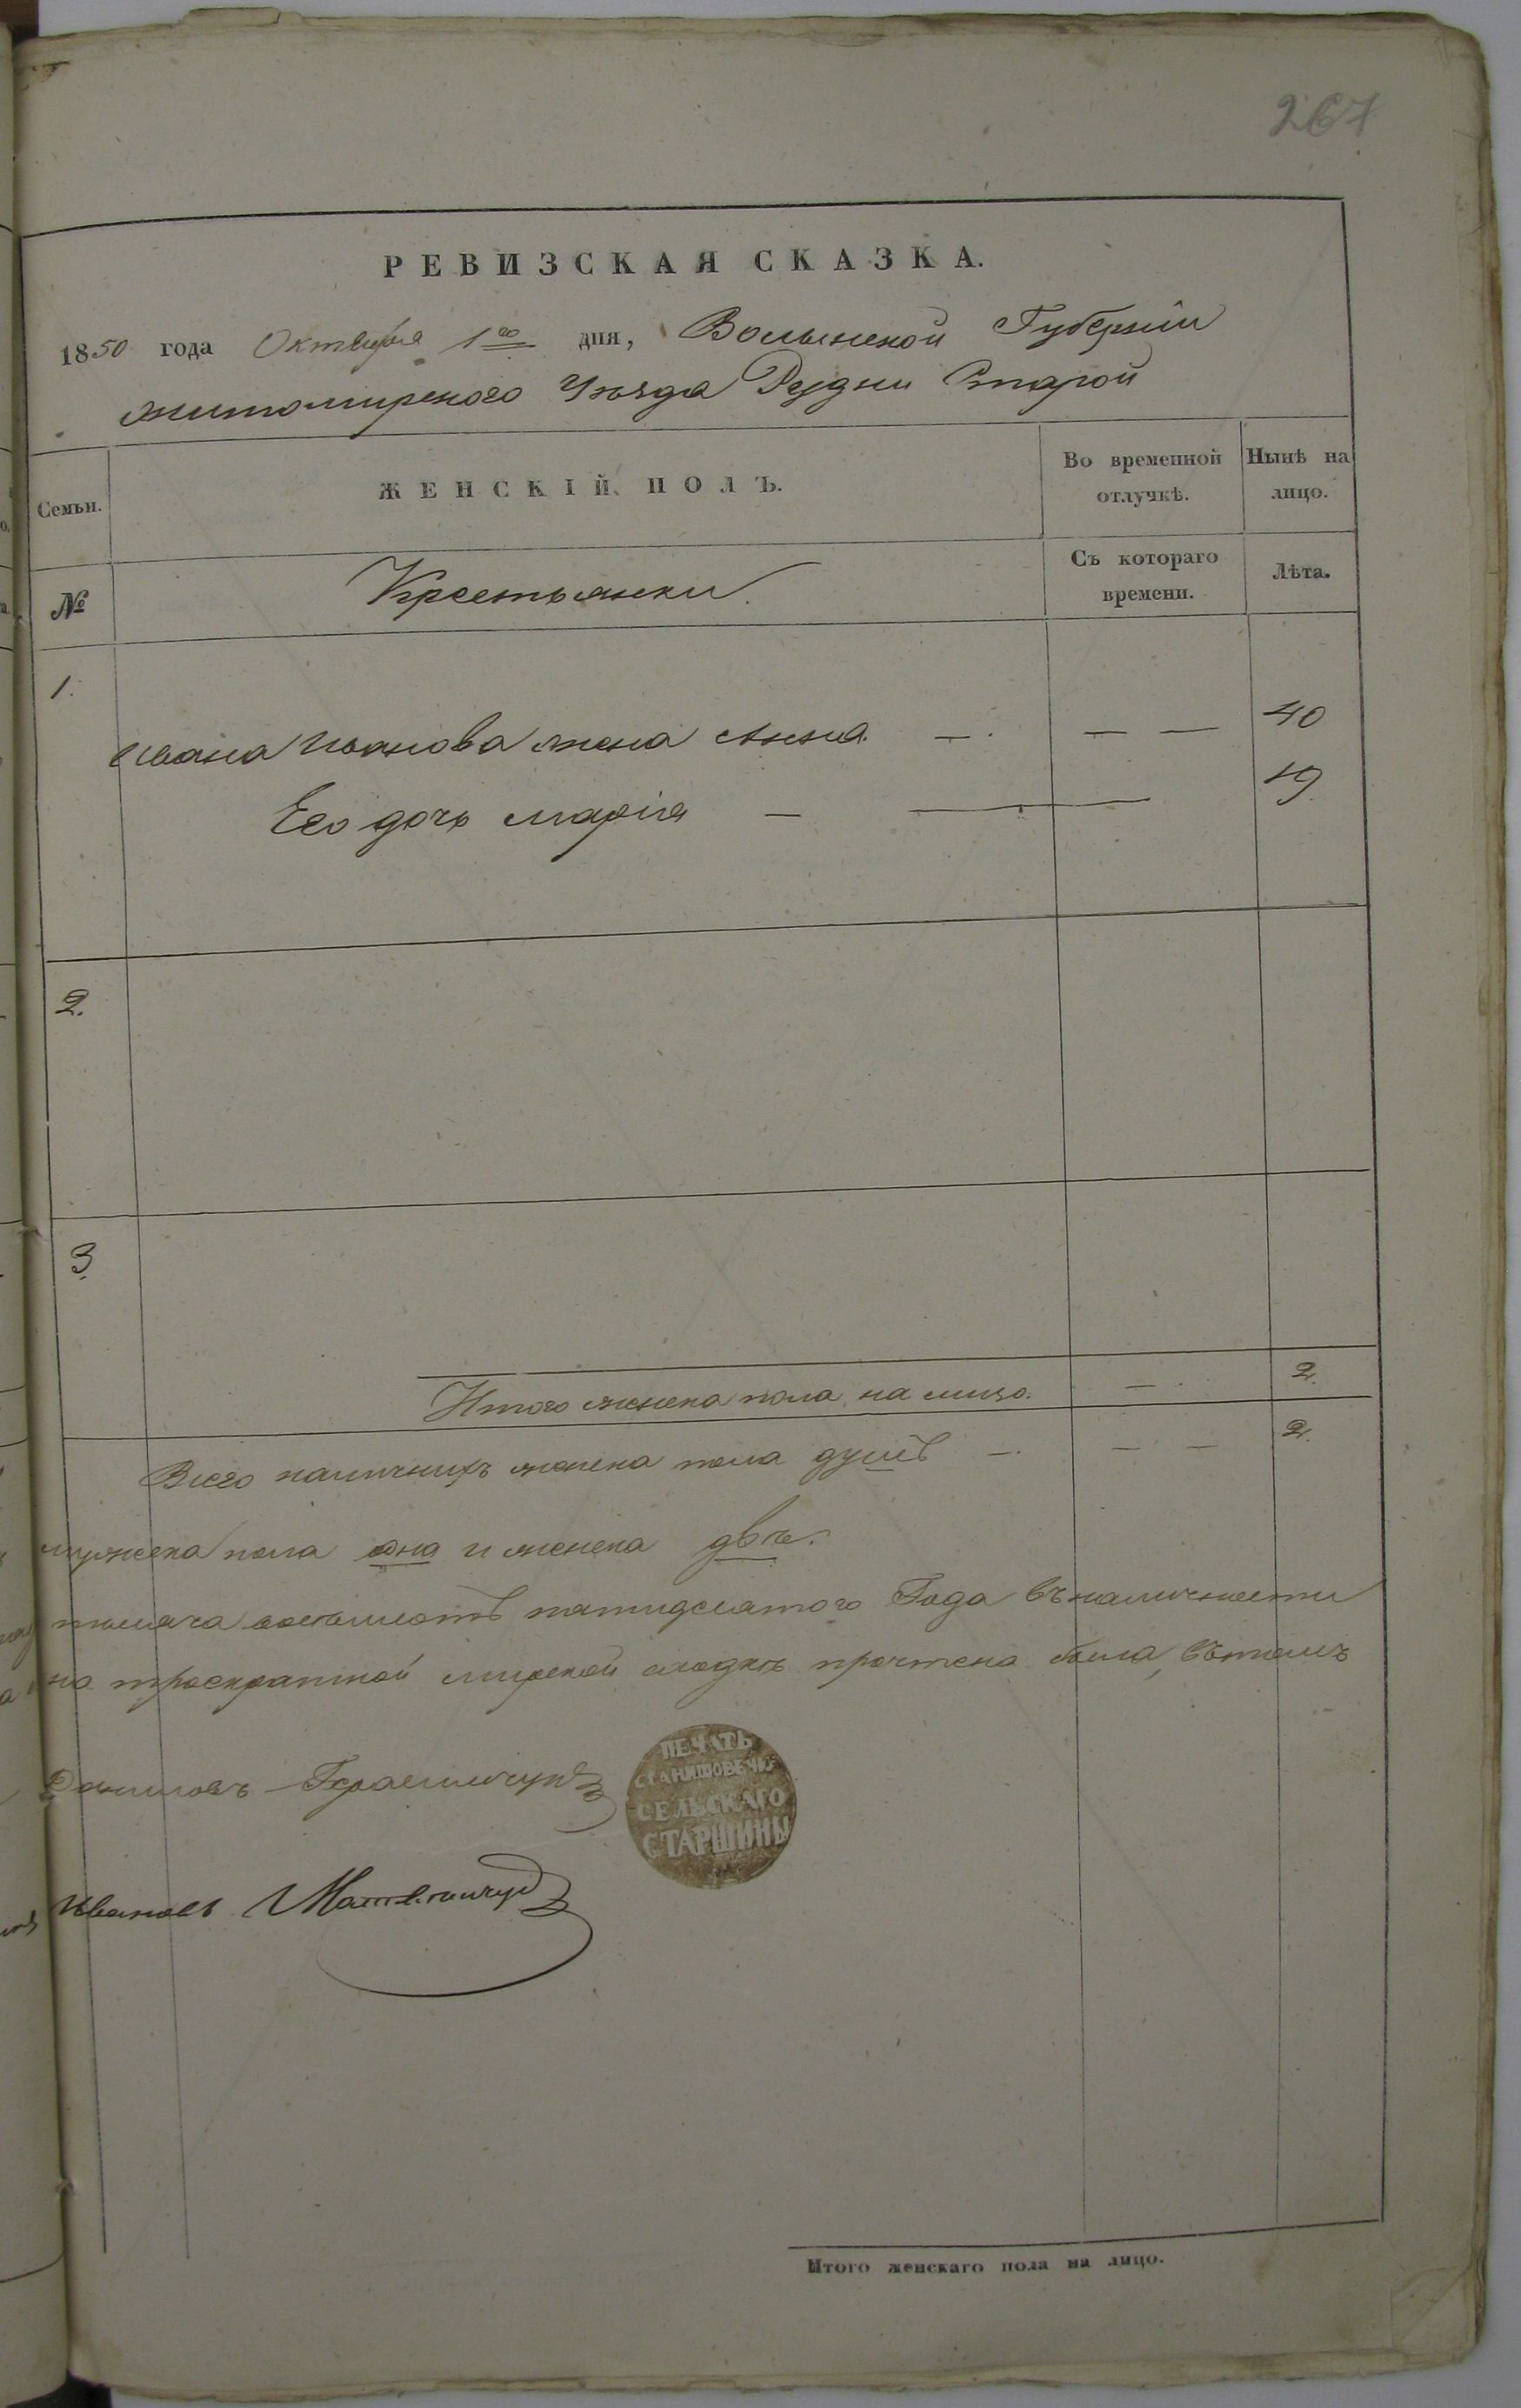 267
РЕВИЗСКАЯ СКАЗКА.
1850 года Октября 1го дня, Волынской Губернии
Житомирского Уѣзда Рудни Старой
Семьи.
ЖЕНСКІЙ ПОЛЪ.
Во временной отлучкѣ.
Нынѣ на лицо.
№
Крестьянки.
Съ котораго времени.
Лѣта.
1.
Ивана Иванова жена Анна — . — — 40
Его дочь Марія — — 19
2.
3.
Итого женска пола на лицо. — . 2.
Всего наличныхъ женска пола душъ — . — — 2.
мужска пола одна и женска двѣ.
тысяча восемьсотъ пятидесятого Года въ наличности
на троекратной мирской сходкѣ прочтена была, въ томъ
Даниловъ
ПЕЧАТЬ
СЕЛЬСКАГО
СТАРШИНЫ
Ивановъ
Итого женскаго пола на лицо.